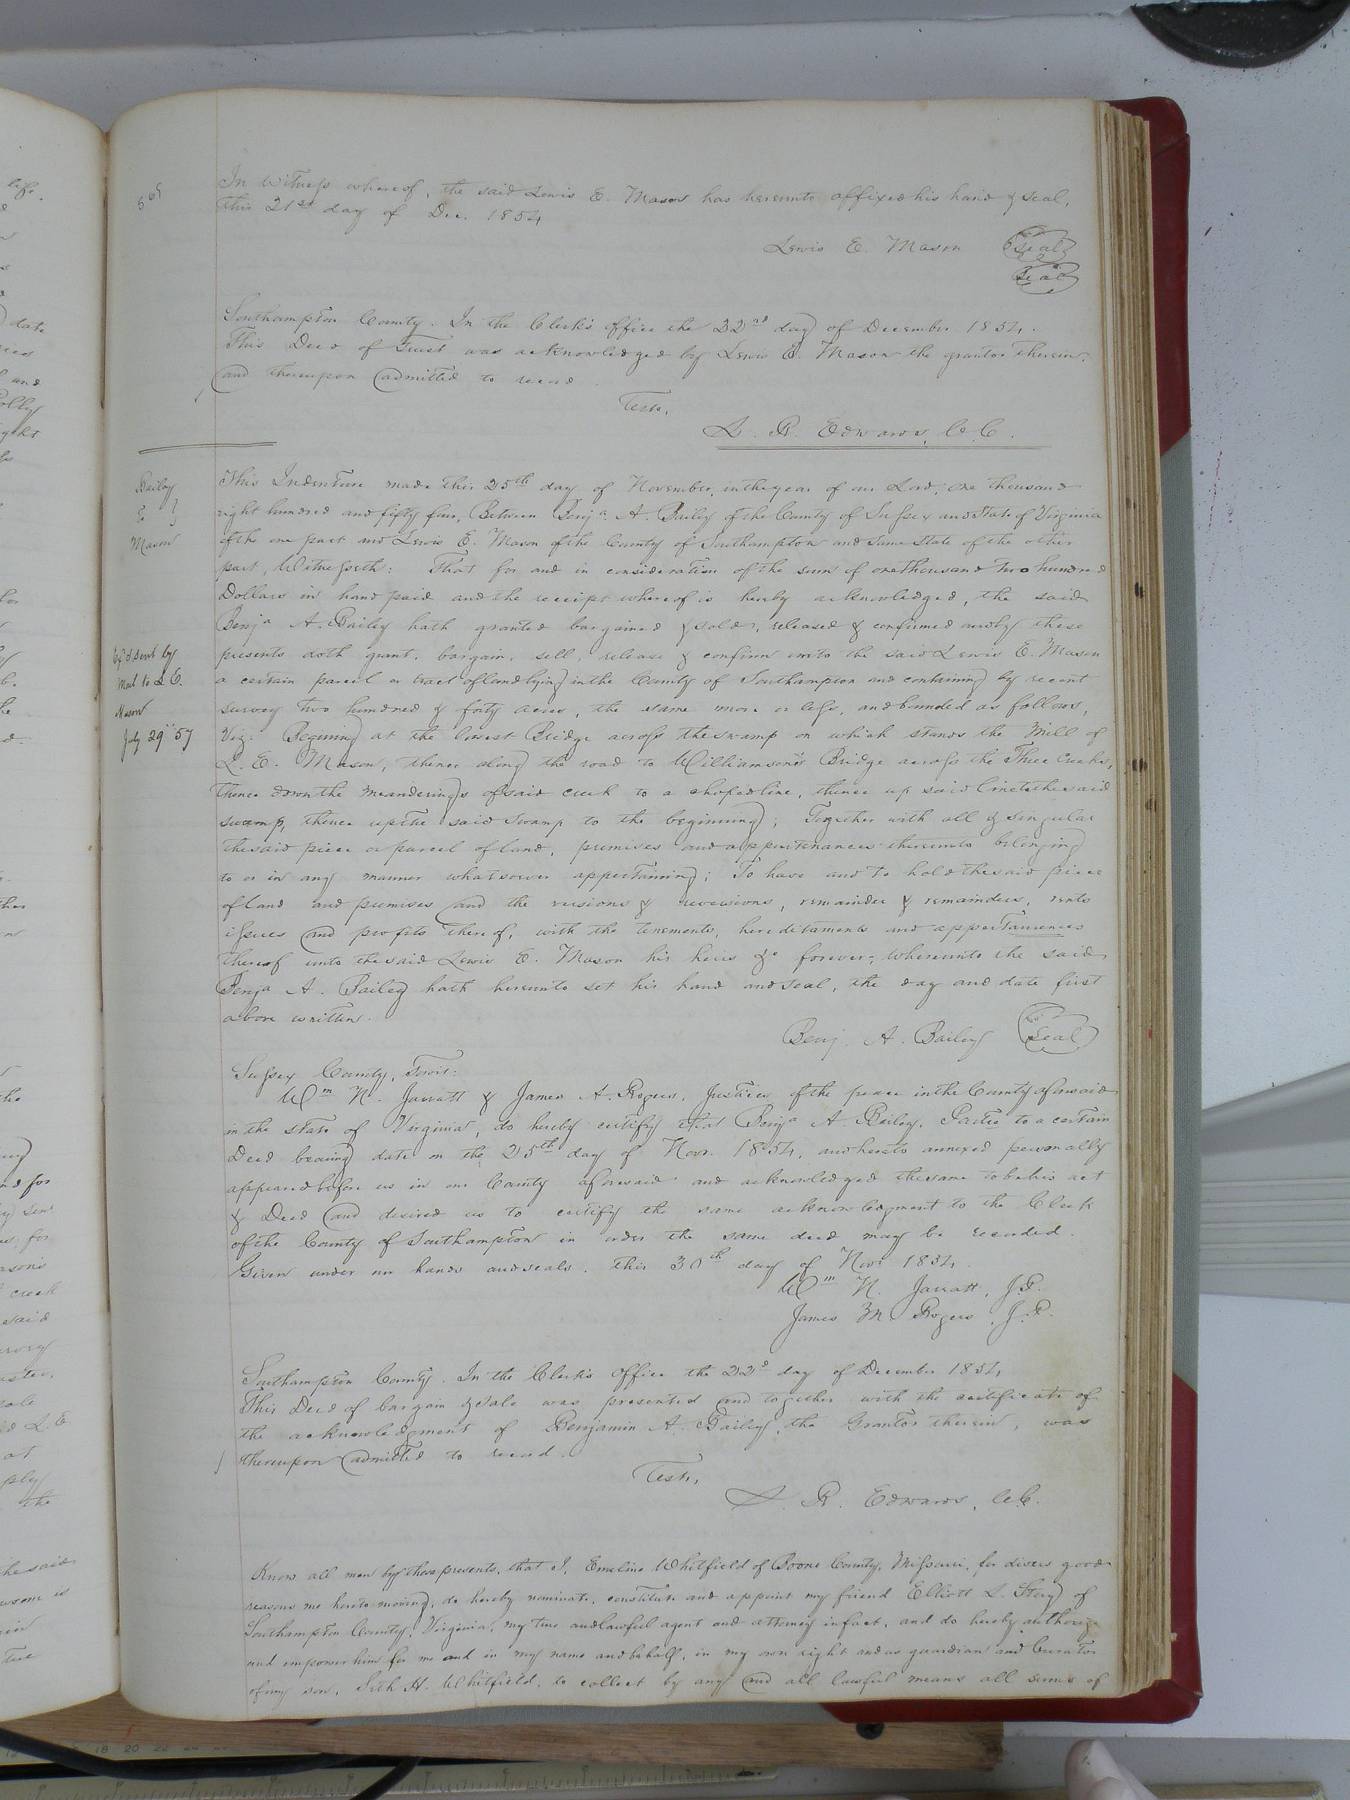 In Witness whereof, the said Lewis E. Mason has hereunto affixed his hand & seal,
this 21st day of Dec. 1854
Lewis E. Mason Seal
Seal
Southampton County. In the Clerk's office the 22nd day of December 1854.
This Deed of Trust was acknowledged by Lewis E. Mason the grantor therein,
and thereupon admitted to record.
Teste,
L. R. Edwards, C.C.
Bailey
to
Mason
This Indenture made this 25th day of November, in the year of our Lord, one thousand
eight hundred and fifty four, Between Benja. A. Bailey of the County of Sussex and State of Virginia
of the one part and Lewis E. Mason of the County of Southampton and same State of the other
part, Witnesseth: That for and in consideration of the sum of one thousand two hundred
Dollars in hand paid and the receipt whereof is hereby acknowledged, the said
Benja A. Bailey hath granted bargained & sold, released & confirmed and by these
presents doth grant, bargain, sell, release & confirm unto the said Lewis E. Mason
a certain parcel or tract of land lying in the County of Southampton and containing by recent
survey two hundred & forty acres, the same more or less, and bounded as follows,
Ex'd & sent by
Mail to L. E.
Mason
July 29 '57
Viz: Begining at the lowest Bridge across the swamp on which stands the Mill of
L. E. Mason, thence along the road to Williamson's Bridge across the Three Creeks,
thence down the meanderings of said creek to a choped line, thence up said line to the said
swamp, thence up the said swamp to the beginning; Together with all & singular
the said piece or parcel of land, premises and appurtenances thereunto belonging
to or in any manner whatsoever appertaining; To have and to hold the said piece
of land and premises and the versions & reversions, remainder & remainders, rents
issues and profits thereof, with the tenements, hereditaments and appertanences
thereof unto the said Lewis E. Mason his heirs &c forever; Whereunto the said
Benja A. Bailey hath hereunto set his hand and seal, the day and date first
above written.
Benj. A. Bailey Seal
Sussex County, Towit:
Wm N. Jarratt & James A. Rogers, Justices of the peace in the County aforesaid
in the State of Virginia, do hereby certify that Benja A. Bailey, Partie to a certain
Deed bearing date on the 25th day of Novr. 1854, and hereto annexed personally
appeared before us in our County aforesaid and acknowledged the same to be his act
& Deed and desired us to certify the same acknowlegment to the Clerk
of the County of Southampton in order the same deed may be recorded.
Given under our hands and seals, this 30th day of Novr 1854.
Wm N. Jarratt, J.P.
James M Rogers, J.P.
Southampton County. In the Clerk's Office the 22d day of December 1854
This Deed of bargain & sale was presented and together with the certificate of
the acknowledgment of Benjamin A. Bailey, the Grantor therein, was
thereupon admitted to record.
Teste,
L. R. Edwards, C.C.
Know all men by these presents, that I, Emeline Whitfield of Boone County, Missouri, for divers good
reasons me hereto moving, do hereby nominate, constitute and appoint my friend Elliott L. Story of
Southampton County, Virginia, my true and lawful agent and attorney in fact, and do hereby authorize
and empower him for me and in my name and behalf, in my own right and as guardian and Curator
of my son, Seth H. Whitfield, to collect by any and all lawful means all sums of